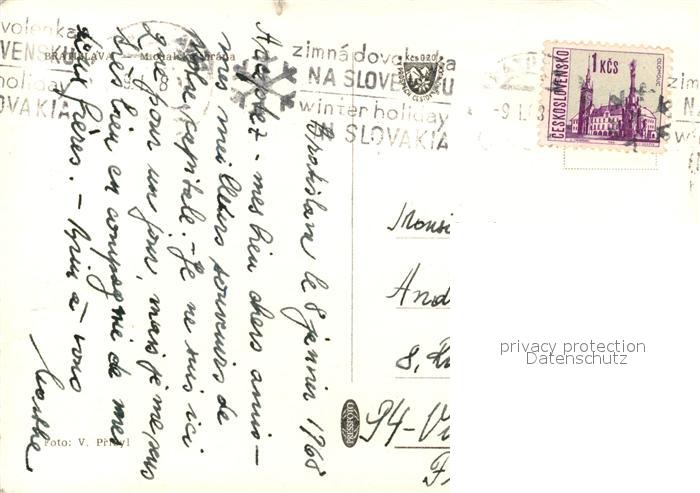 volenka
OVENSKU
holiday
OVAKIA
BRATISLAVA Michalská brána
zimná dovolenka
NA SLOVENSKU
winter holiday
SLOVAKIA
Kčs 0.20
-9.I.68
ČESKOSLOVENSKO
1 KČS
OLOMOUC
zim
N
Bratislava le 8 janvier 1968
Acceptez – mes bien chers amis –
mes meilleurs souvenirs de
notre capitale. – Je ne suis ici
que pour un jour, mais je me suis
très bien en compagnie de mes
frères. – Bien à vous
Marthe
Monsi
And
8, R
94-Vi
F
PRESSFOTO
Foto: V. Přibyl
privacy protection
Datenschutz